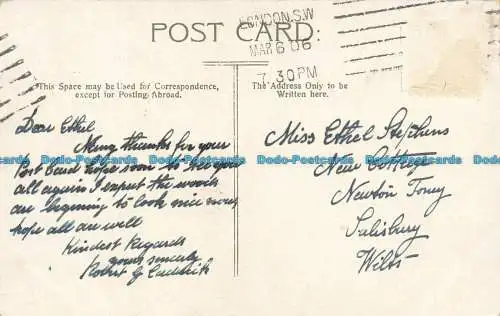 POST CARD:
LONDON.S.W
MAR 6 06
7.30PM
This Space may be Used for Correspondence,
except for Posting Abroad.
The Address Only to be
Written here.
Dear Ethel
Many thanks for your
Post Card hope soon to see you
all again I expect the woods
are begining to look nice now
hope all are well
Kindest Regards
yours sincerely
Robert G
Miss Ethel Stephens
New Cottage
Newton Toney
Salisbury
Wilts
Dodo-Postcards Dodo-Postcards Dodo-Postcards Dodo-Postcards Dodo-Postcards Dodo-Postcards